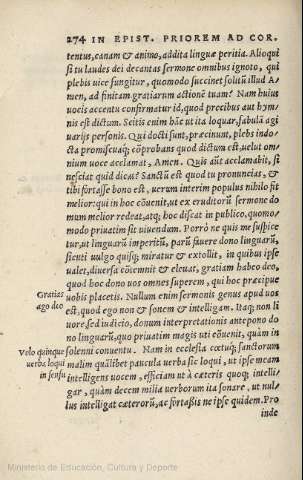 274 IN EPIST. PRIOREM AD COR.
tentus, canam & animo, addita linguæ peritia. Alioqui
si tu laudes dei decantas sermone omnibus ignoto, qui
plebis vice fungitur, quomodo succinet solitũ illud A-
men, ad finitam gratiarum actionẽ tuam? Nam huius
uocis accentu confirmatur id, quod precibus aut hym-
nis est dictum. Scitis enim hãc ut ita loquar, fabulã agi
uarijs personis. Qui docti sunt, præcinunt, plebs indo-
cta promiscuaq; cõprobans quod dictum est, uelut om-
nium uoce acclamat, Amen. Quis aũt acclamabit, si
nesciat quid dicas? Sanctũ est quod tu pronuncias, &
tibi fortasse bono est, uerum interim populus nihilo fit
melior: qui in hoc cõuenit, ut ex eruditorũ sermone do-
mum melior redeat, atq; hoc discat in publico, quomo-
modo priuatim sit uiuendum. Porrò ne quis me suspice
tur, ut linguarũ imperitũ, parũ fauere dono linguarũ,
sicuti uulgo quisq; miratur & extollit, in quibus ipse
ualet, diuersa cõtemnit & eleuat, gratiam habeo deo,
quod hoc dono uos omnes superem, qui hoc præcipue
Gratias
ago deo
uobis placetis. Nullum enim sermonis genus apud uos
est, quod ego non & sonem & intelligam. Itaq; non li
uore, sed iudicio, donum interpretationis antepono do
no linguarũ, quo priuatim magis uti cõuenit, quàm in
Velo quinque
uerba loqui
in sensu
solenni conuentu. Nam in ecclesia cœtuq; sanctorum
malim quãlibet paucula uerba sic loqui, ut ipse meam
intelligens uocem, efficiam ut à cæteris quoq; intelli-
gar, quàm decem milia uerborum ita sonare, ut nul-
lus intelligat cæterorũ, ac fortaßis ne ipse quidem. Pro
inde
Ministerio de Educación, Cultura y Deporte